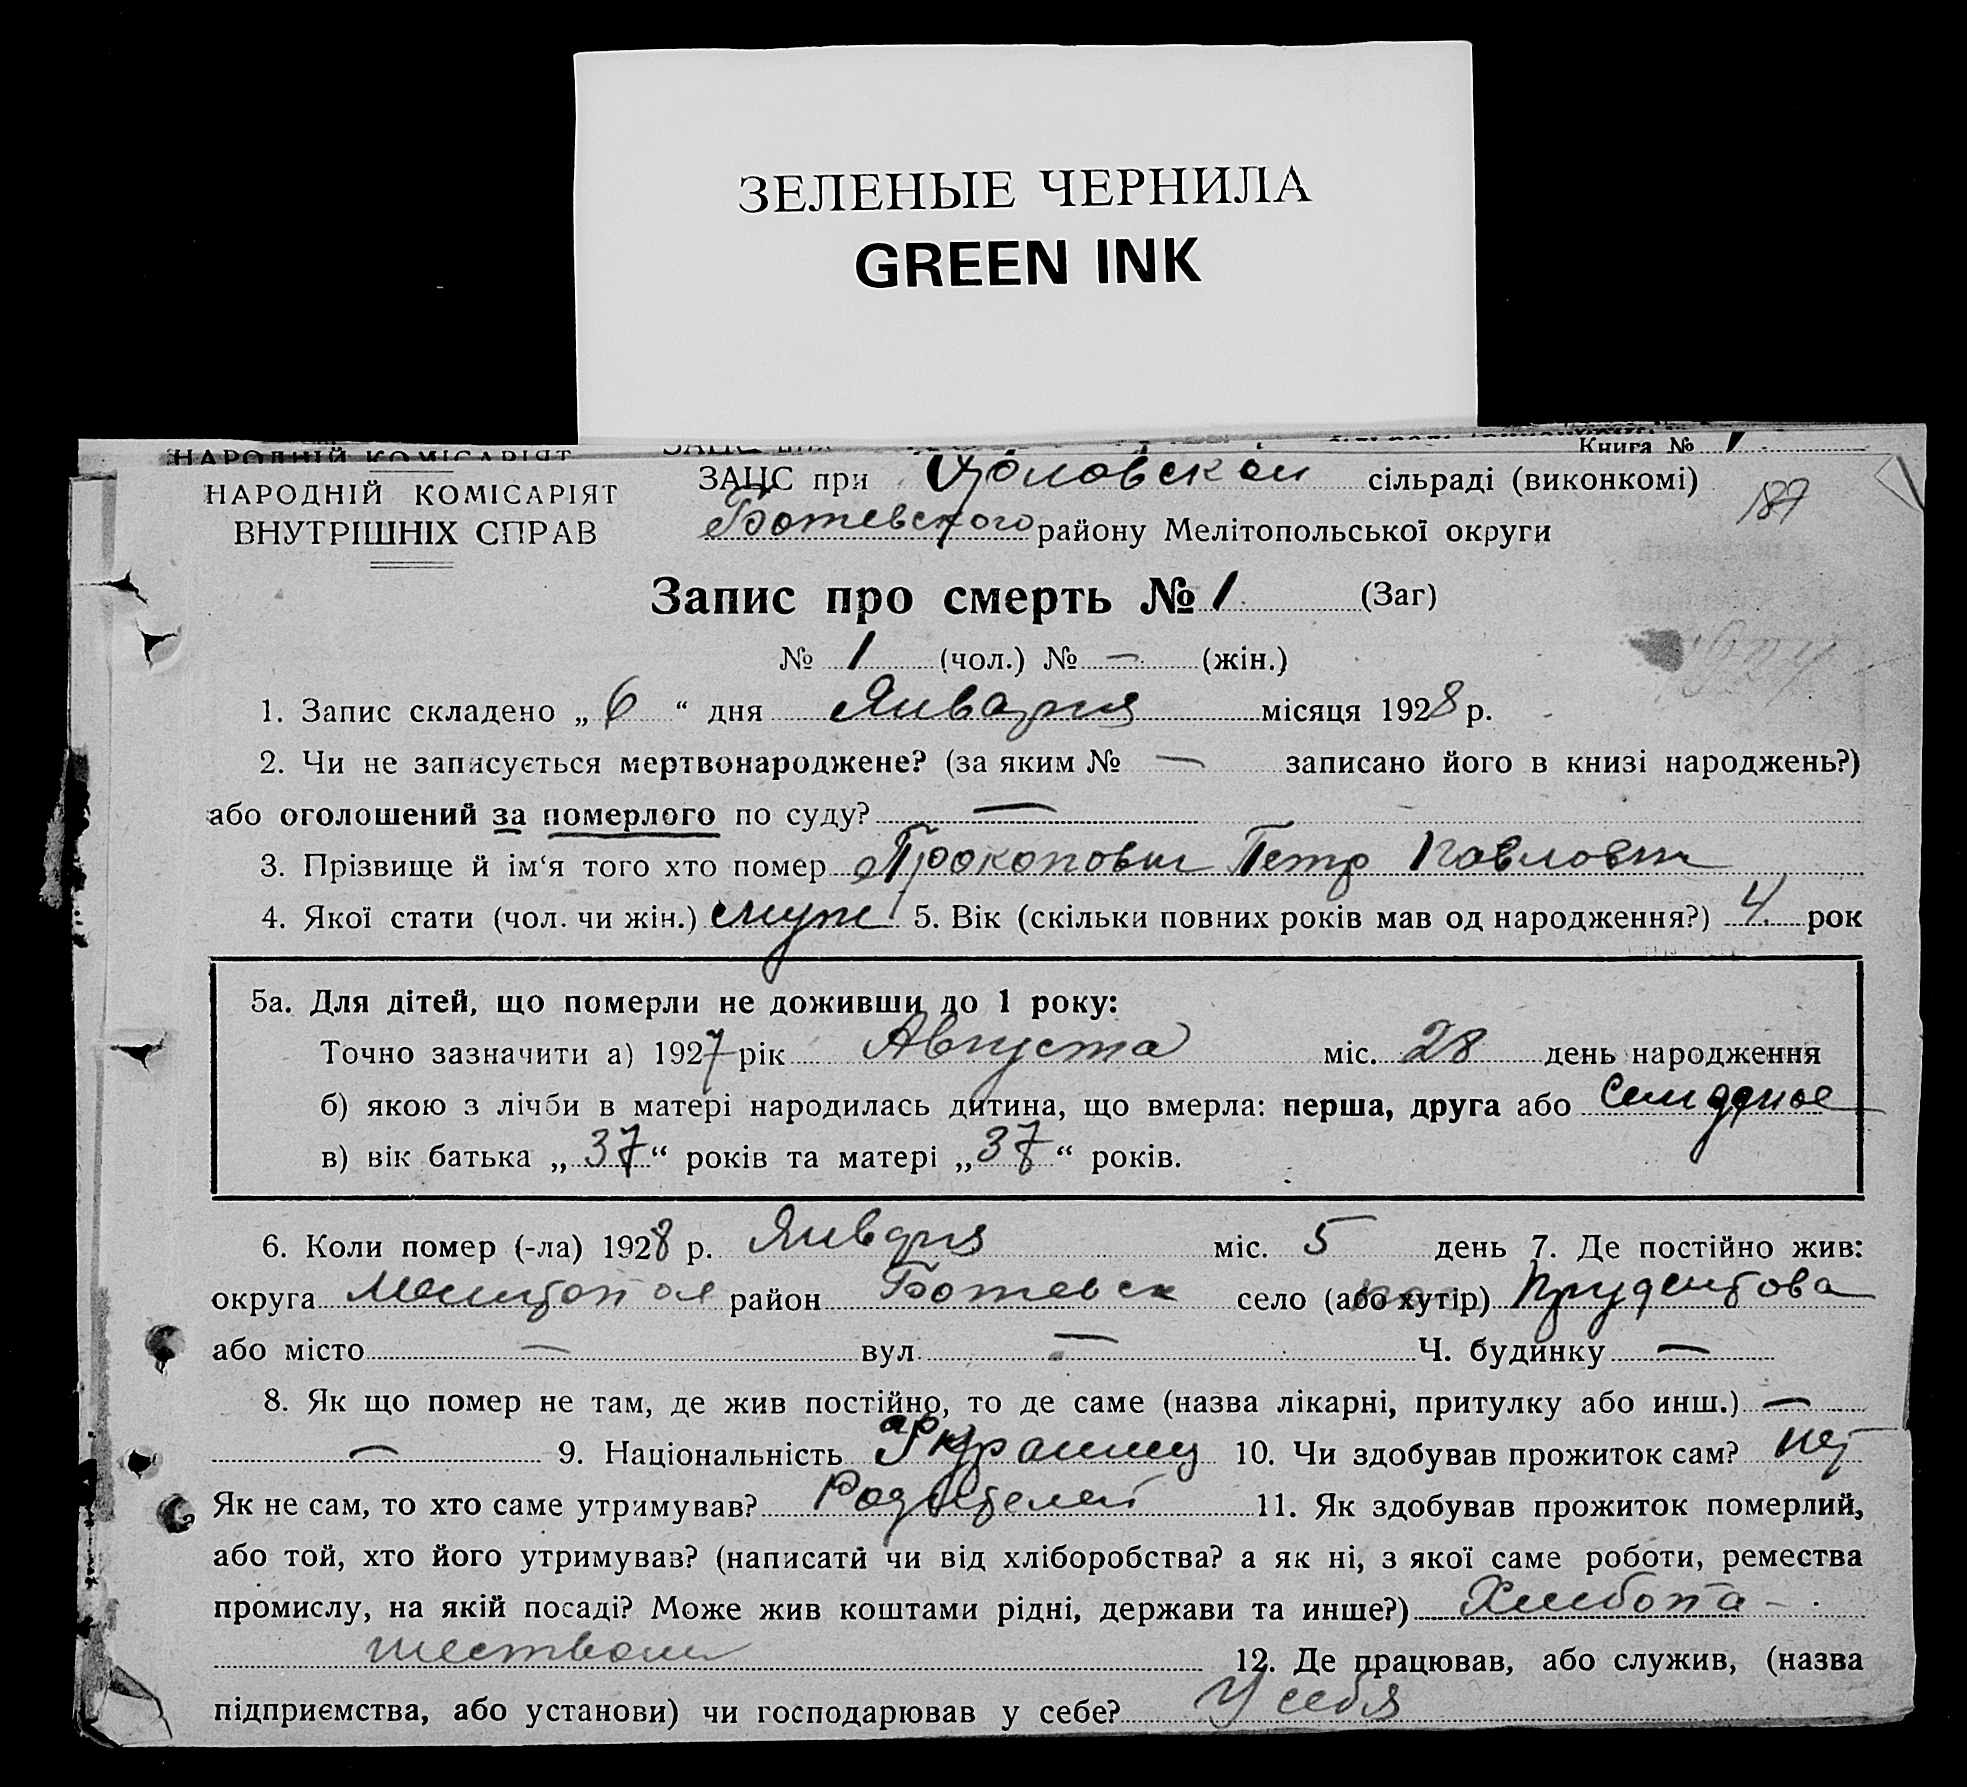 ЗЕЛЕНЫЕ ЧЕРНИЛА
GREEN INK
НАРОДНІЙ КОМІСАРІЯТ
Книга № 1
НАРОДНІЙ КОМІСАРІЯТ
ВНУТРІШНІХ СПРАВ
ЗАЦС при сільраді (виконкомі)
187
Ботевского району Мелітопольської округи
Запис про смерть № 1 (Заг)
№ 1 (чол.) № — (жін.)
1. Запис складено „ 6 “ дня Января місяця 1928 р.
2. Чи не записується мертвонароджене? (за яким № — записано його в книзі народжень?)
або оголошений за померлого по суду? —
3. Прізвище й ім‘я того хто помер Прокопович Петр Павлович
4. Якої стати (чол. чи жін.) муж 5. Вік (скільки повних років мав од народження?) 4 рок
5а. Для дітей, що померли не доживши до 1 року:
Точно зазначити а) 1927 рік Августа міс. 28 день народження
б) якою з лічби в матері народилась дитина, що вмерла: перша, друга або
в) вік батька „ 37 “ років та матері „ 37 “ років.
6. Коли помер (-ла) 1928 р. Января міс. 5 день 7. Де постійно жив:
округа Мелитопол район Ботевск село (або хутір) Прудентова
або місто — вул. — Ч. будинку —
8. Як що помер не там, де жив постійно, то де саме (назва лікарні, притулку або инш.) —
— 9. Національність Украинец 10. Чи здобував прожиток сам? нет
Як не сам, то хто саме утримував? Родителей 11. Як здобував прожиток померлий,
або той, хто його утримував? (написати чи від хліборобства? а як ні, з якої саме роботи, ремества
промислу, на якій посаді? Може жив коштами рідні, держави та инше?) Хлибопа-
шеством 12. Де працював, або служив, (назва
підприємства, або установи) чи господарював у себе? У себя